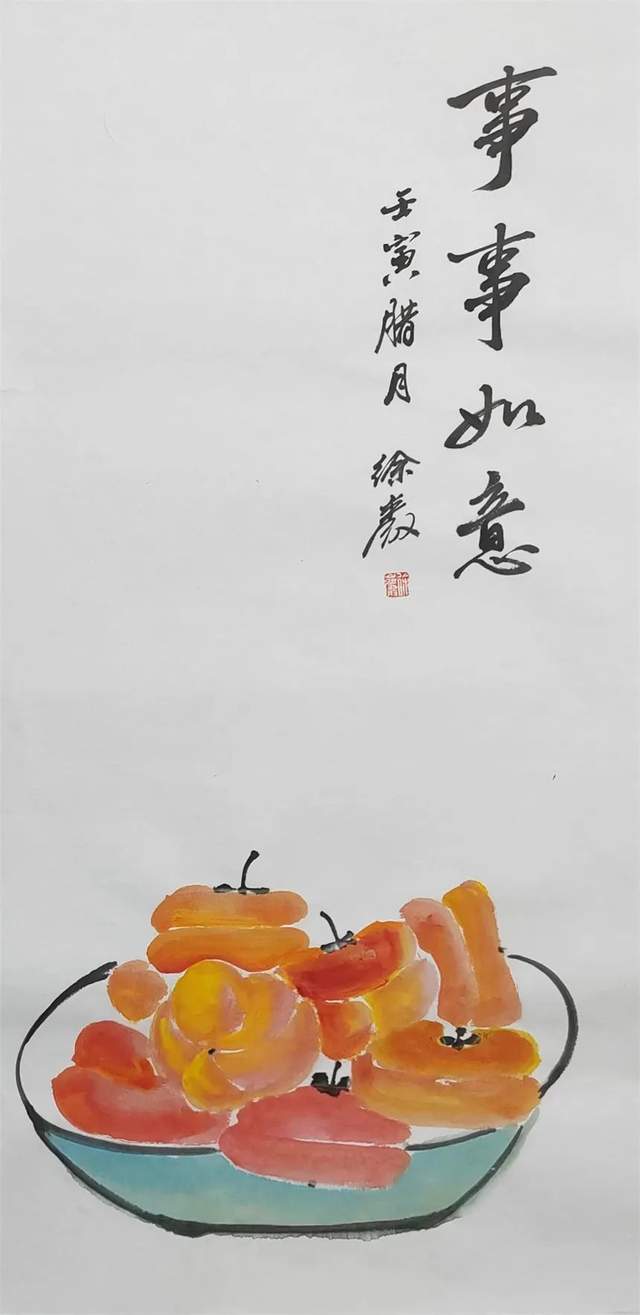 事事如意
壬寅腊月
徐